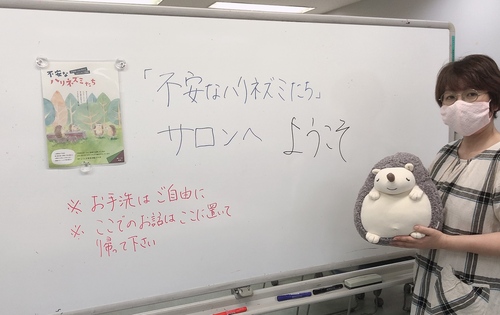 不安な
ハリネズミたち
「不安なハリネズミたち」
サロンへ ようこそ
※ お手洗はご自由に
※ ここでのお話はここに置いて
帰って下さい